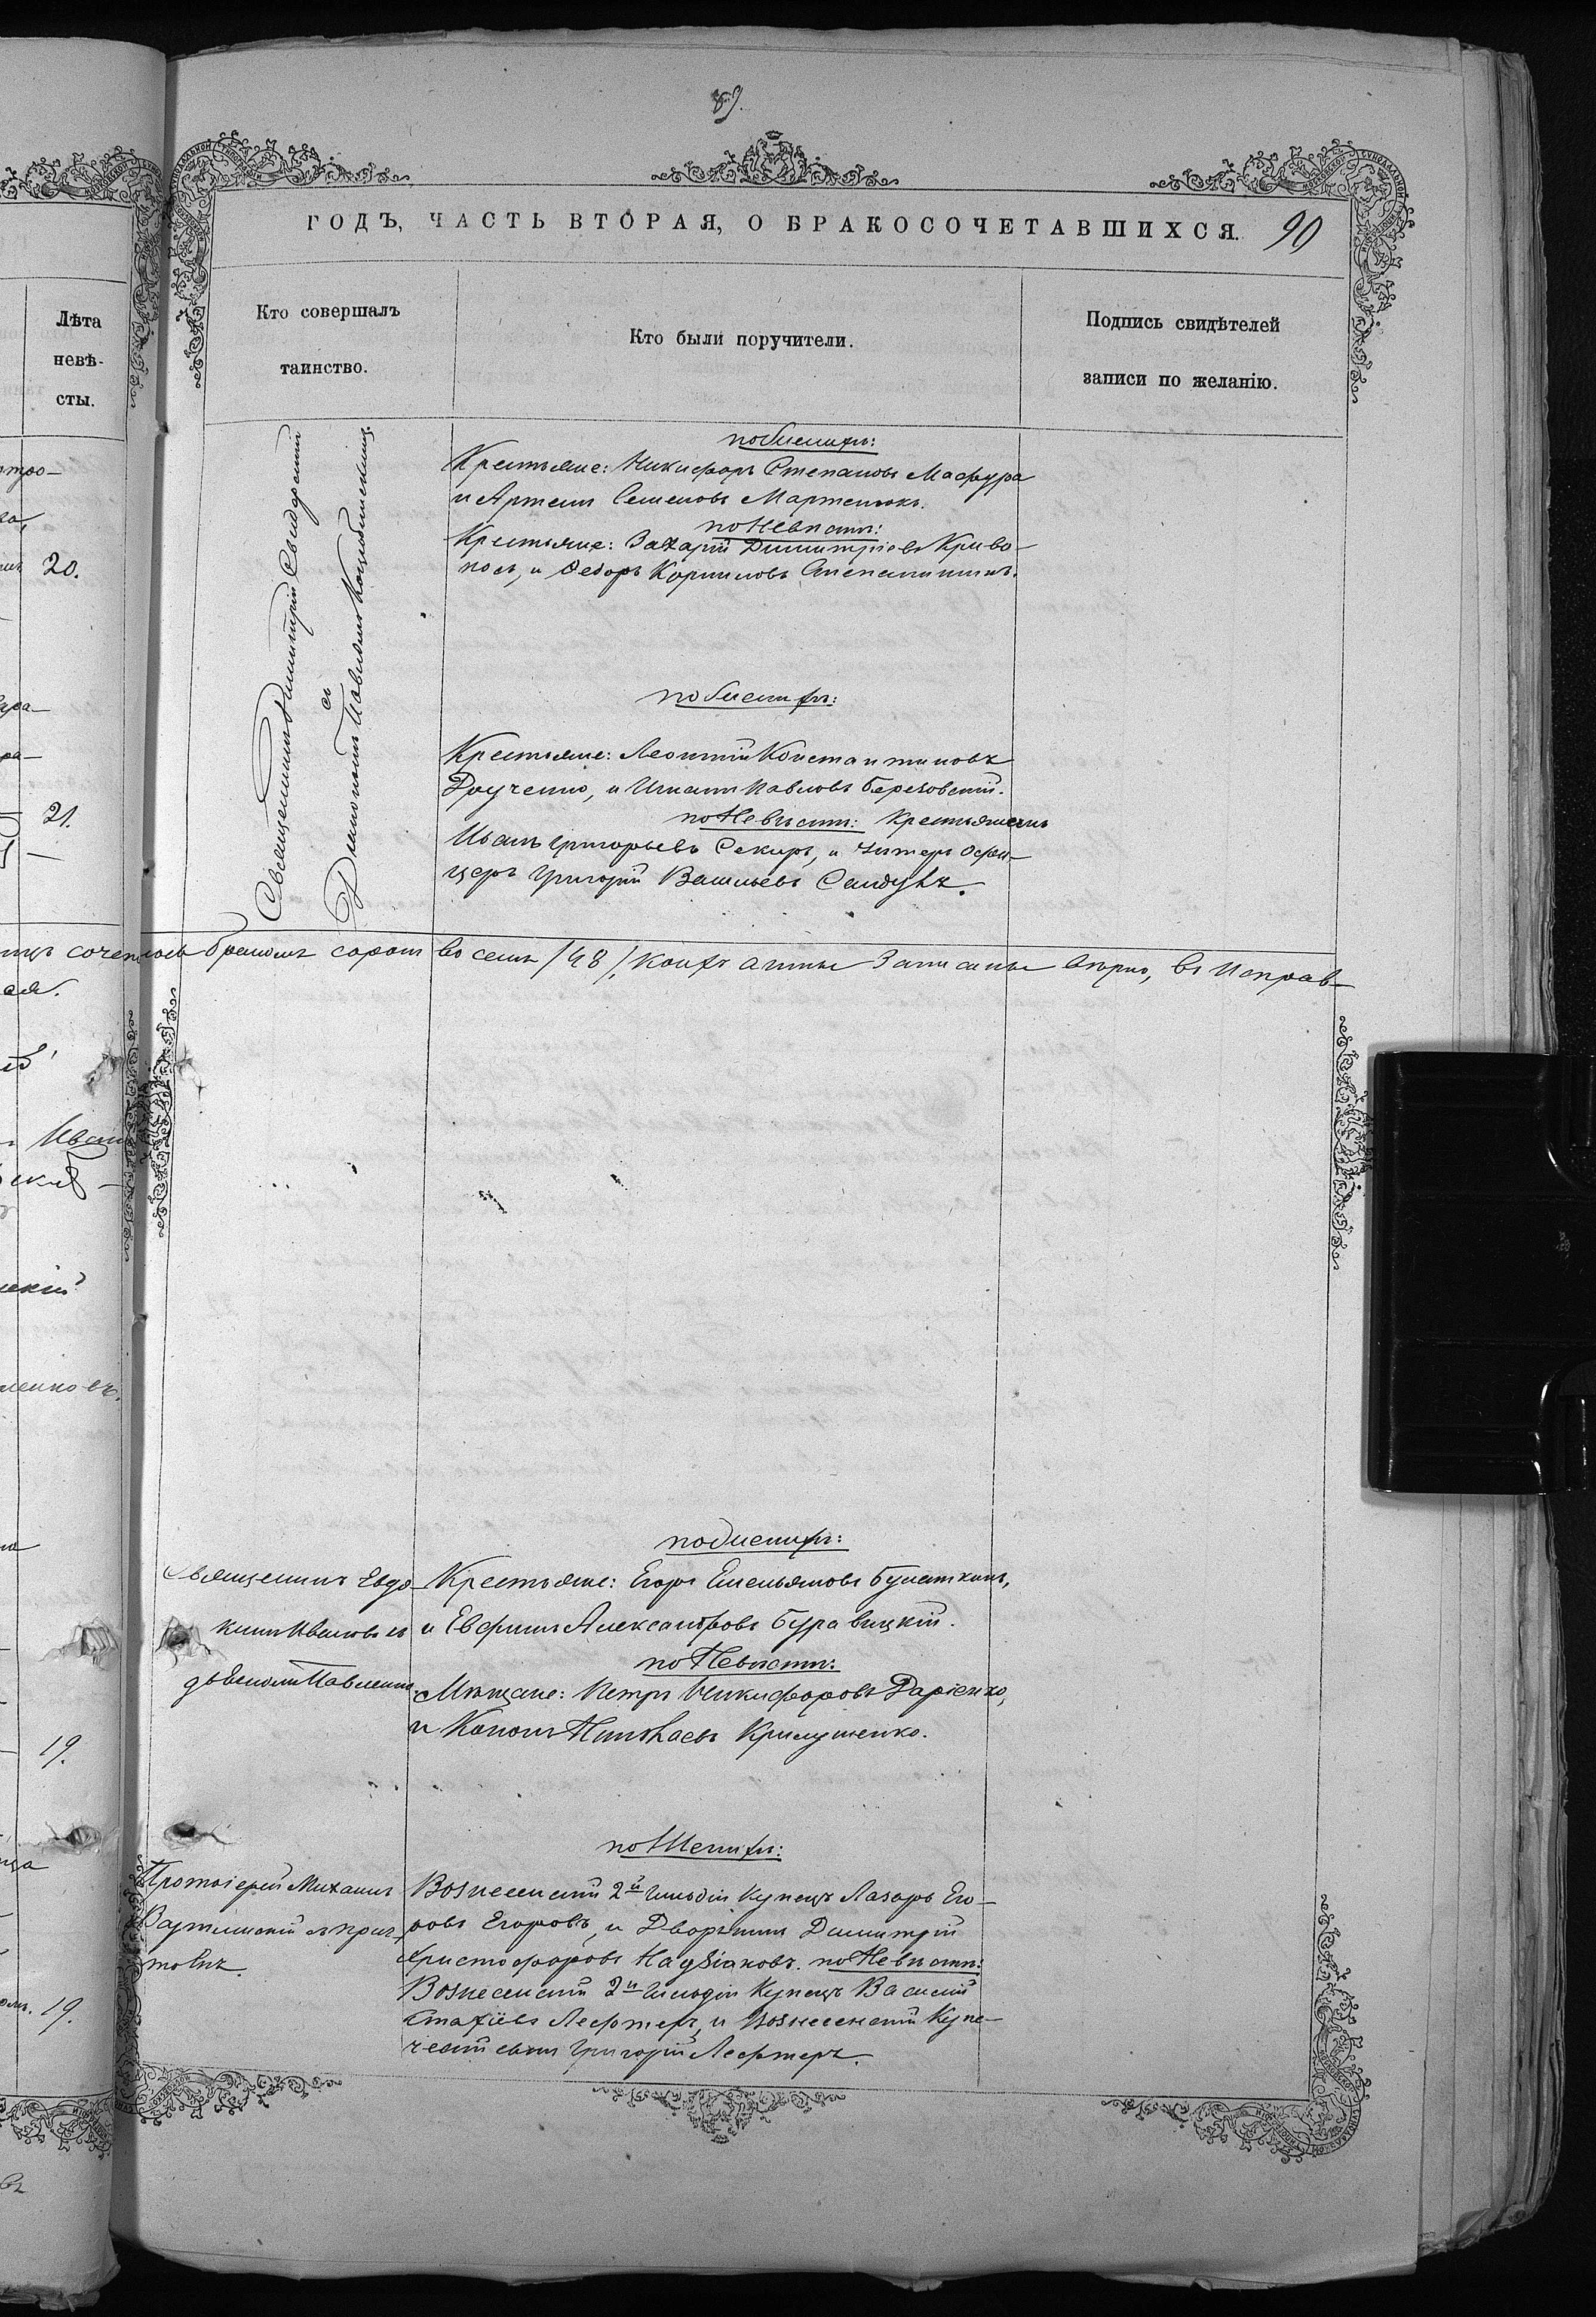 89.
ГОДЪ, ЧАСТЬ ВТОРАЯ, О БРАКОСОЧЕТАВШИХСЯ. 90
Лѣта
невѣ-
сты.
Кто совершалъ
таинство.
Кто были поручители.
Подпись свидѣтелей
записи по желанію.
20.
21.
19.
19.
Священникъ Димитрій
съ
Діакономъ Павломъ
по Женихѣ:
Крестьяне: Никифоръ Степановъ Мафтура
и Артемъ Семеновъ Мартенюкъ.
по Невѣстѣ:
Крестьяне: Захарій Димитріевъ Криво-
носъ, и Ѳедоръ Корниловъ
по Женихѣ:
Крестьяне: Леонтій Константиновъ
Друченко, и Игнатъ Павловъ Березовскій.
по Невѣстѣ: Крестьянинъ
Иванъ Григорьевъ Секиръ, и Унтеръ Офи-
церъ Григорій Васильевъ Сандулъ.
сочеталось бракомъ сорокъ восемь /48/, кои акты записаны вѣрно, въ исправ-
по Женихѣ:
Священникъ Евдо-
кимъ Ивановъ съ
дьякомъ Павленко.
Крестьяне: Егоръ Емельяновъ Булаткинъ,
и Евфимъ Александровъ Буравицкій.
по Невѣстѣ:
Мѣщане: Петръ Никифоровъ Даріенко,
и Кононъ Николаевъ Крилушенко.
по Женихѣ:
Протоіерей Михаилъ
Вартминскій съ прич-
томъ.
Вознесенскій 2й гильдіи Купецъ Лазарь Его-
ровъ Егоровъ, и Дворянинъ Димитрій
Христофоровъ Надзіаковъ. по Невѣстѣ:
Вознесенскій 2й гильдіи Купецъ Василій
Стафіевъ Лефтеръ, и Вознесенскій Купе-
ческій сынъ Григорій Лефтеръ.